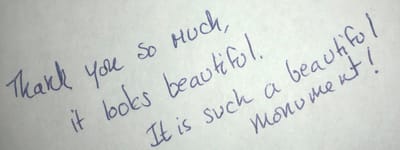 Thank you so much,
it looks beautiful.
It is such a beautiful
monument!